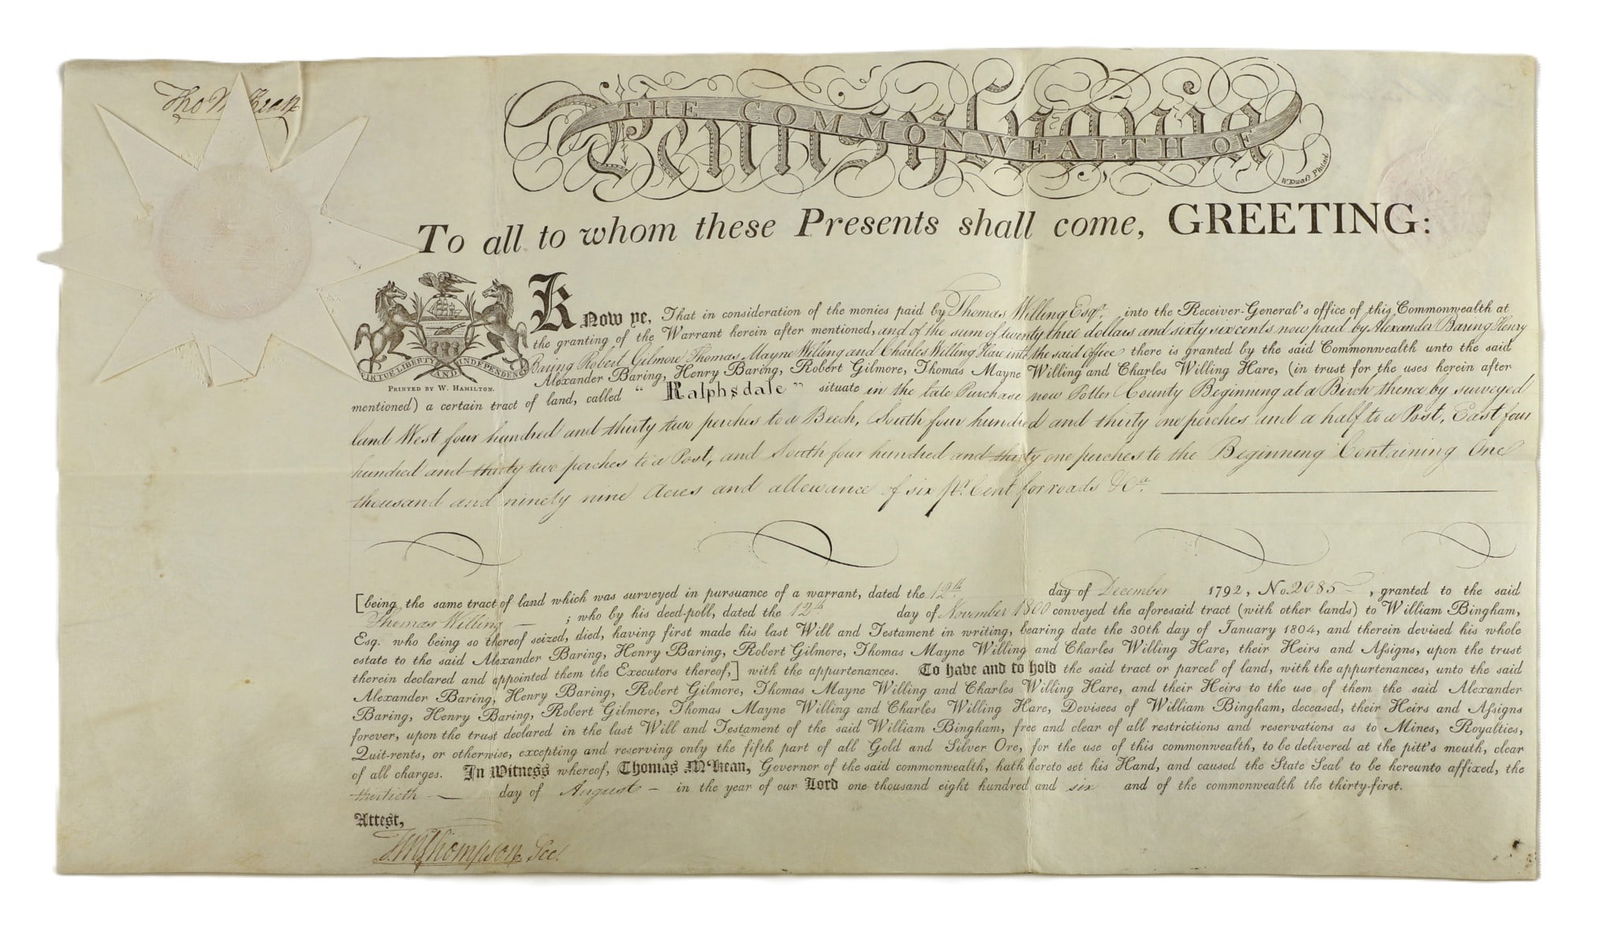 Tho M Kean
THE COMMONWEALTH OF
Pennsylvania
To all to whom these Presents shall come, GREETING:
Know ye, That in consideration of the monies paid by Thomas Willing Esqr. into the Receiver-General's office of this Commonwealth at
the granting of the Warrant herein after mentioned, and of the sum of twenty three dollars and sixty six cents now paid by Alexander Baring Henry
Baring Robert Gilmore Thomas Mayne Willing and Charles Willing Hare into the said office there is granted by the said Commonwealth unto the said
Alexander Baring, Henry Baring, Robert Gilmore, Thomas Mayne Willing and Charles Willing Hare, (in trust for the uses herein after
VIRTUE LIBERTY AND INDEPENDENCE
PRINTED BY W. HAMILTON.
mentioned) a certain tract of land, called "Ralphsdale" situate in the late Purchase now Potter County Beginning at a Birch thence by surveyed
land West four hundred and thirty two perches to a Beech, South four hundred and thirty one perches and a half to a Post, East four
hundred and thirty two perches to a Post, and South four hundred and thirty one perches to the Beginning Containing One
thousand and ninety nine Acres and allowance of six pr. Cent for roads &ca.
[being the same tract of land which was surveyed in pursuance of a warrant, dated the 12th day of December 1792, No. 2085, granted to the said
Thomas Willing ; who by his deed-poll, dated the 12th day of November 1800 conveyed the aforesaid tract (with other lands) to William Bingham,
Esq. who being so thereof seized, died, having first made his last Will and Testament in writing, bearing date the 30th day of January 1804, and therein devised his whole
estate to the said Alexander Baring, Henry Baring, Robert Gilmore, Thomas Mayne Willing and Charles Willing Hare, their Heirs and Assigns, upon the trust
therein declared and appointed them the Executors thereof,] with the appurtenances. To have and to hold the said tract or parcel of land, with the appurtenances, unto the said
Alexander Baring, Henry Baring, Robert Gilmore, Thomas Mayne Willing and Charles Willing Hare, and their Heirs to the use of them the said Alexander
Baring, Henry Baring, Robert Gilmore, Thomas Mayne Willing and Charles Willing Hare, Devisees of William Bingham, deceased, their Heirs and Assigns
forever, upon the trust declared in the last Will and Testament of the said William Bingham, free and clear of all restrictions and reservations as to Mines, Royalties,
Quit-rents, or otherwise, excepting and reserving only the fifth part of all Gold and Silver Ore, for the use of this commonwealth, to be delivered at the pitt's mouth, clear
of all charges. In Witness whereof, Thomas M'Kean, Governor of the said commonwealth, hath hereto set his Hand, and caused the State Seal to be hereunto affixed, the
thirtieth day of August in the year of our Lord one thousand eight hundred and six and of the commonwealth the thirty-first.
Attest,
Thompson Sec.